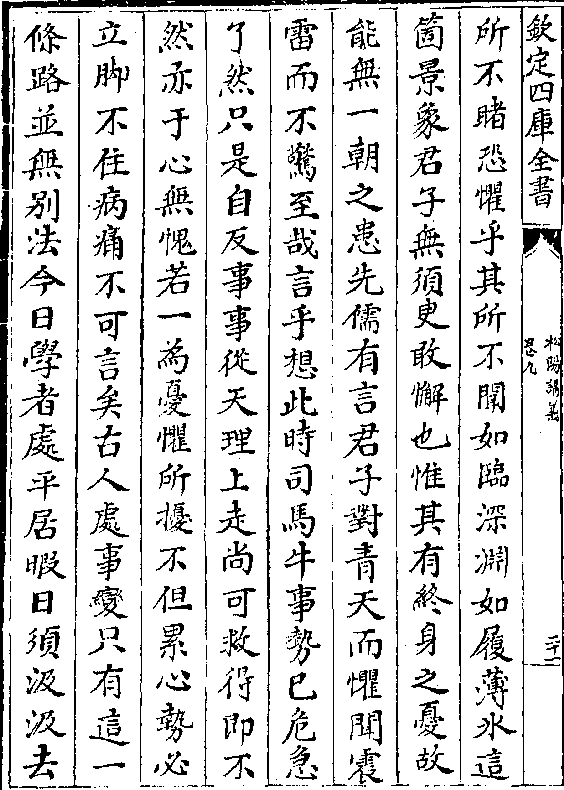 欽定四庫全書
松陽講義
卷九
二十一
所不睹恐懼乎其所不聞如臨深淵如履薄氷這
箇景象君子無須臾敢懈也惟其有終身之憂故
能無一朝之患先儒有言君子對青天而懼聞震
雷而不驚至哉言乎想此時司馬牛事勢已危急
了然只是自反事事從天理上走尚可救得即不
然亦于心無愧若一為憂懼所擾不但累心勢必
立脚不住病痛不可言矣古人處事變只有這一
條路並無别法今日學者處平居暇日須汲汲去